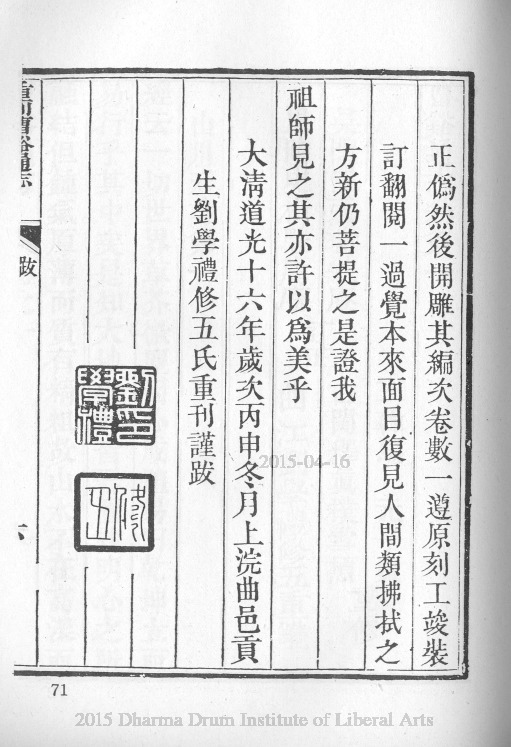 正僞然後開雕其編次卷數一遵原刻工竣裝
訂翻閱一過覺本來面目復見人間類拂拭之
方新仍菩提之是證我
祖師見之其亦許以爲美乎
大清道光十六年歲次丙申冬月上浣曲邑貢
生劉學禮修五氏重刊謹跋
劉學禮印
修五
重刊曹谿通志
跋
六
2015-04-16
71
2015 Dharma Drum Institute of Liberal Arts